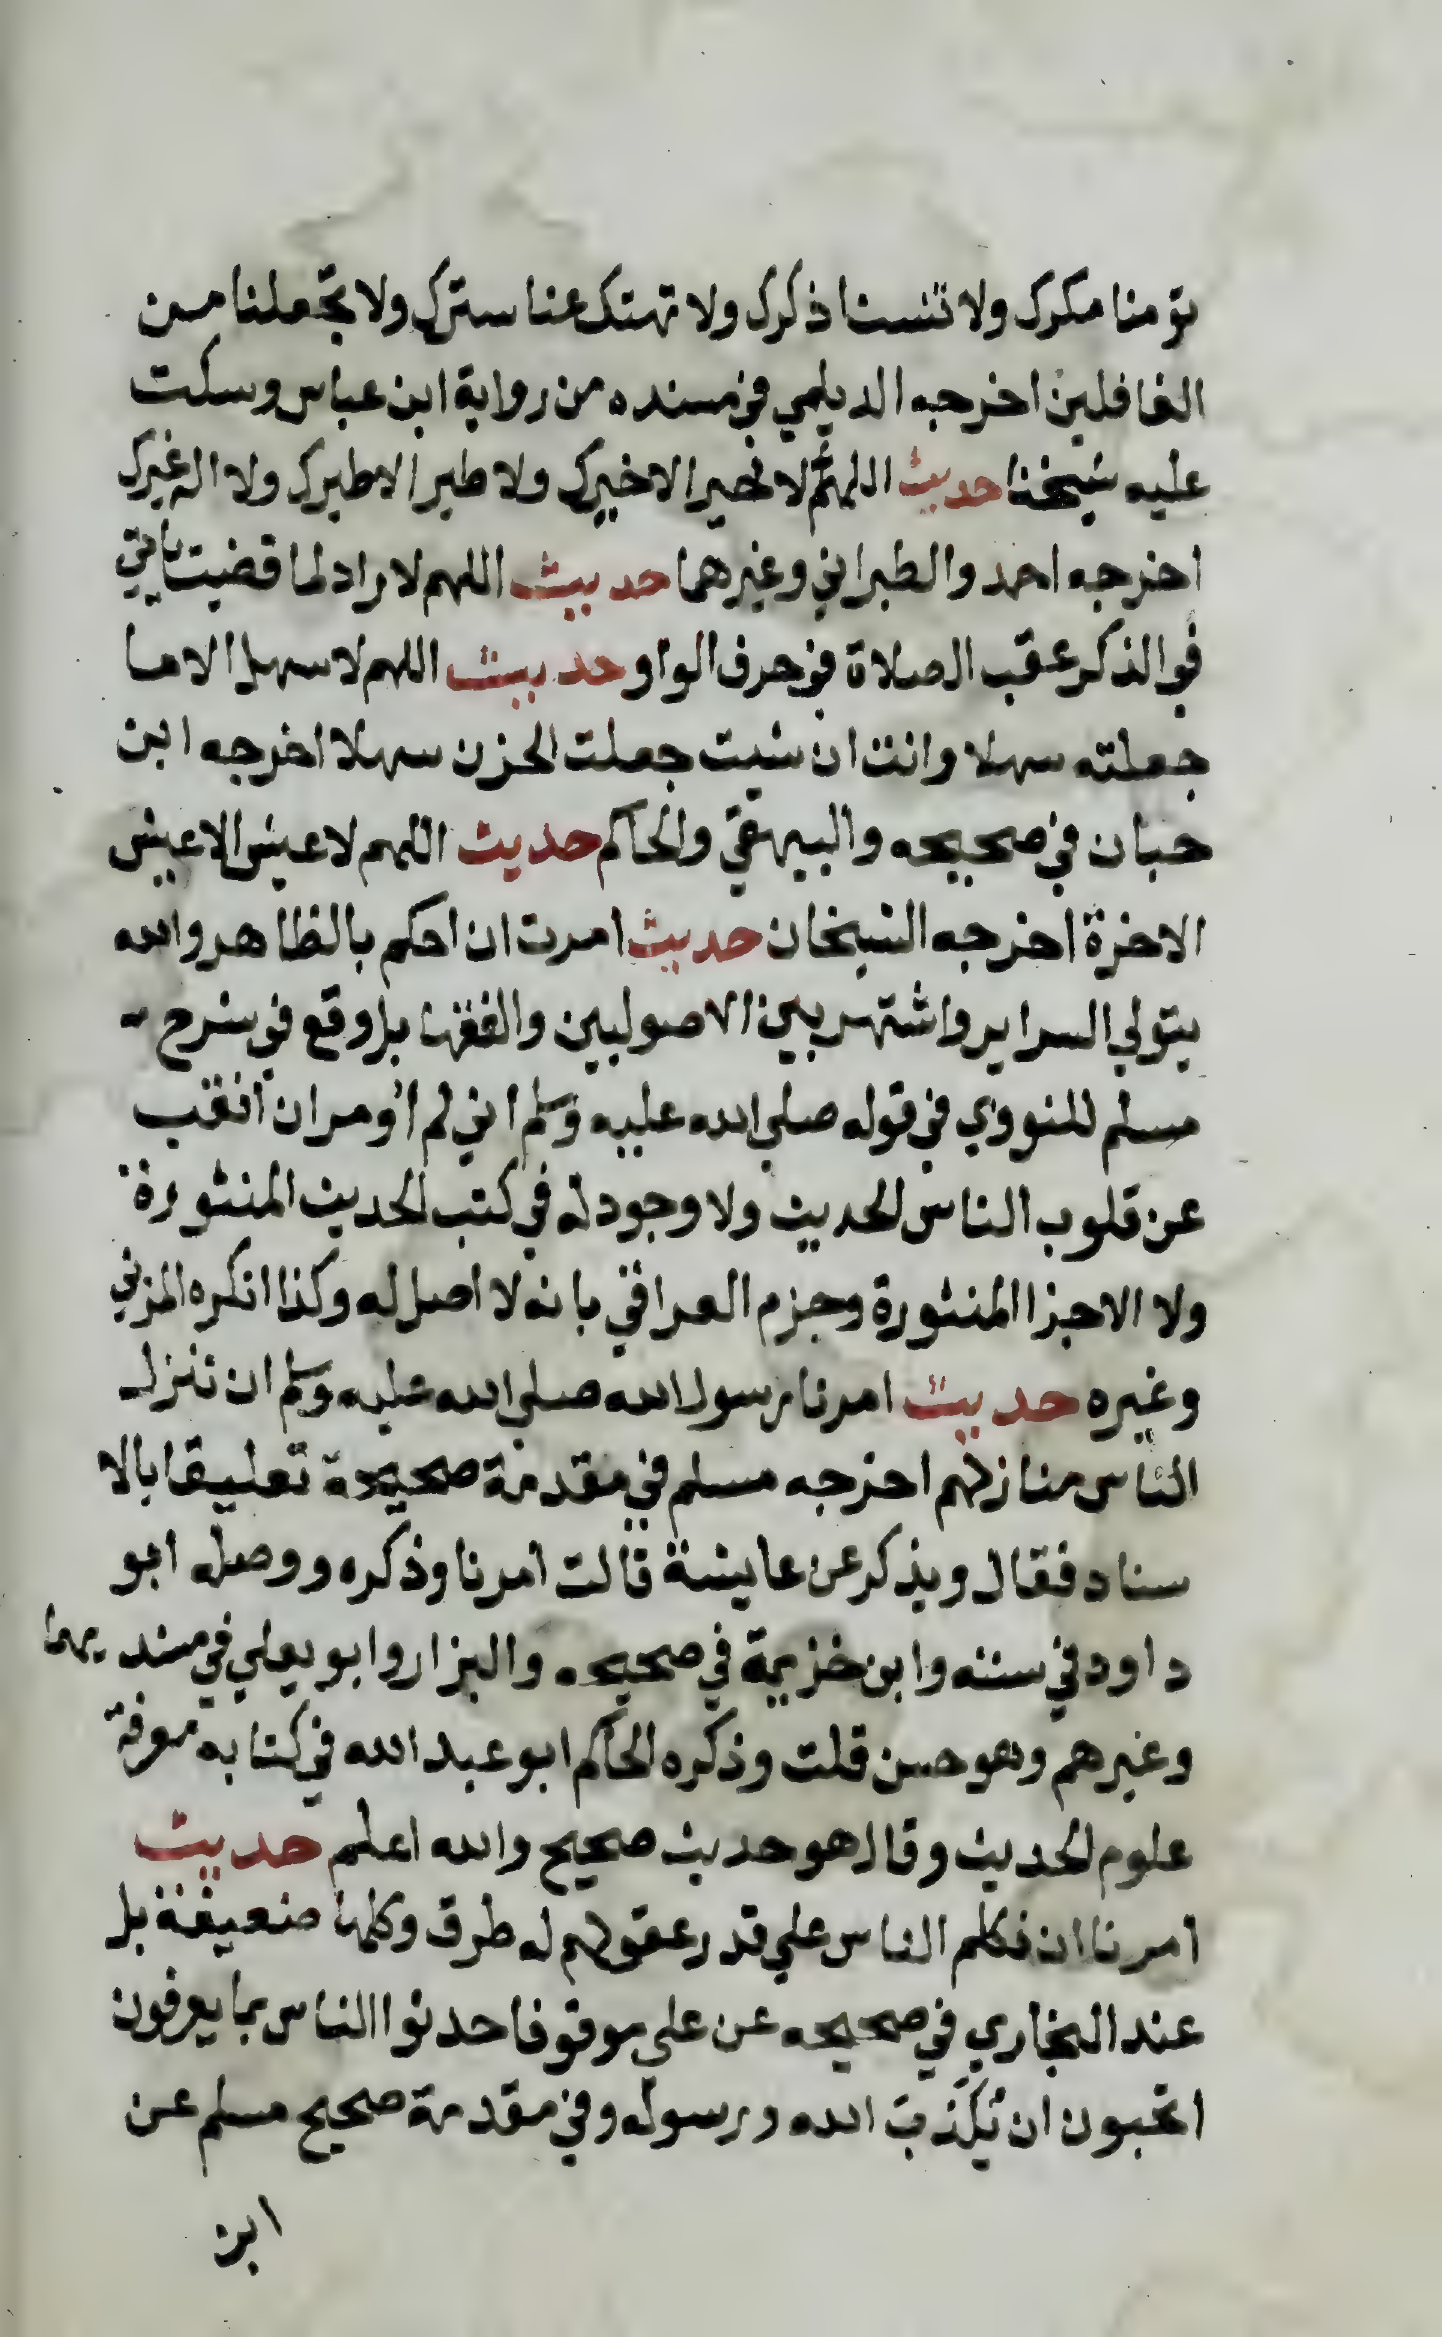 تؤمنا مكرك ولا تنسنا ذكرك ولا تهتك عنا سترك ولا تجعلنا من
الغافلين اخرجه الديلمي في مسنده من رواية ابن عباس وسكت
عليه شيخنا حديث اللهم لا خير الا خيرك ولا طير الا طيرك ولا اله غيرك
اخرجه احمد والطبراني وغيرهما حديث اللهم لا راد لما قضيت ياتي
في الذكر عقب الصلاة في حرف الواو حديث اللهم لا سهل الا ما
جعلته سهلا وانت ان شيت جعلت الحزن سهلا اخرجه ابن
حبان في صحيحه والبيهقي والحاكم حديث اللهم لا عيش الا عيش
الاخرة اخرجه الشيخان حديث امرت ان احكم بالظاهر والله
يتولي السراير واشتهر بين الاصوليين والفقها بل وقع في شرح
مسلم للنووي في قوله صلي الله عليه وسلم اني لم أومر ان انقب
عن قلوب الناس الحديث ولا وجود له في كتب الحديث المنثورة
ولا الاجزا المنثورة وجزم العراقي بانه لا اصل له وكذا انكره المزني
وغيره حديث امرنا رسول الله صلي الله عليه وسلم ان ننزل
الناس منازلهم اخرجه مسلم في مقدمة صحيحة تعليقا بالا
سناد فقال ويذكر عن عايشة قالت امرنا وذكره ووصله ابو
داود في سننه وابن خزيمة في صحيحه والبزار وابو يعلي في مسنديهما
وغيرهم وهو حسن قلت وذكره الحاكم ابو عبد الله في كتابه معرفة
علوم الحديث وقال هو حديث صحيح والله اعلم حديث
امرنا ان نكلم الناس علي قدر عقولهم له طرق وكلها ضعيفة بل
عند البخاري في صحيحه عن علي موقوفا حدثوا الناس بما يعرفون
اتحبون ان يُكذَّبَ الله ورسوله وفي مقدمة صحيح مسلم عن
ابن